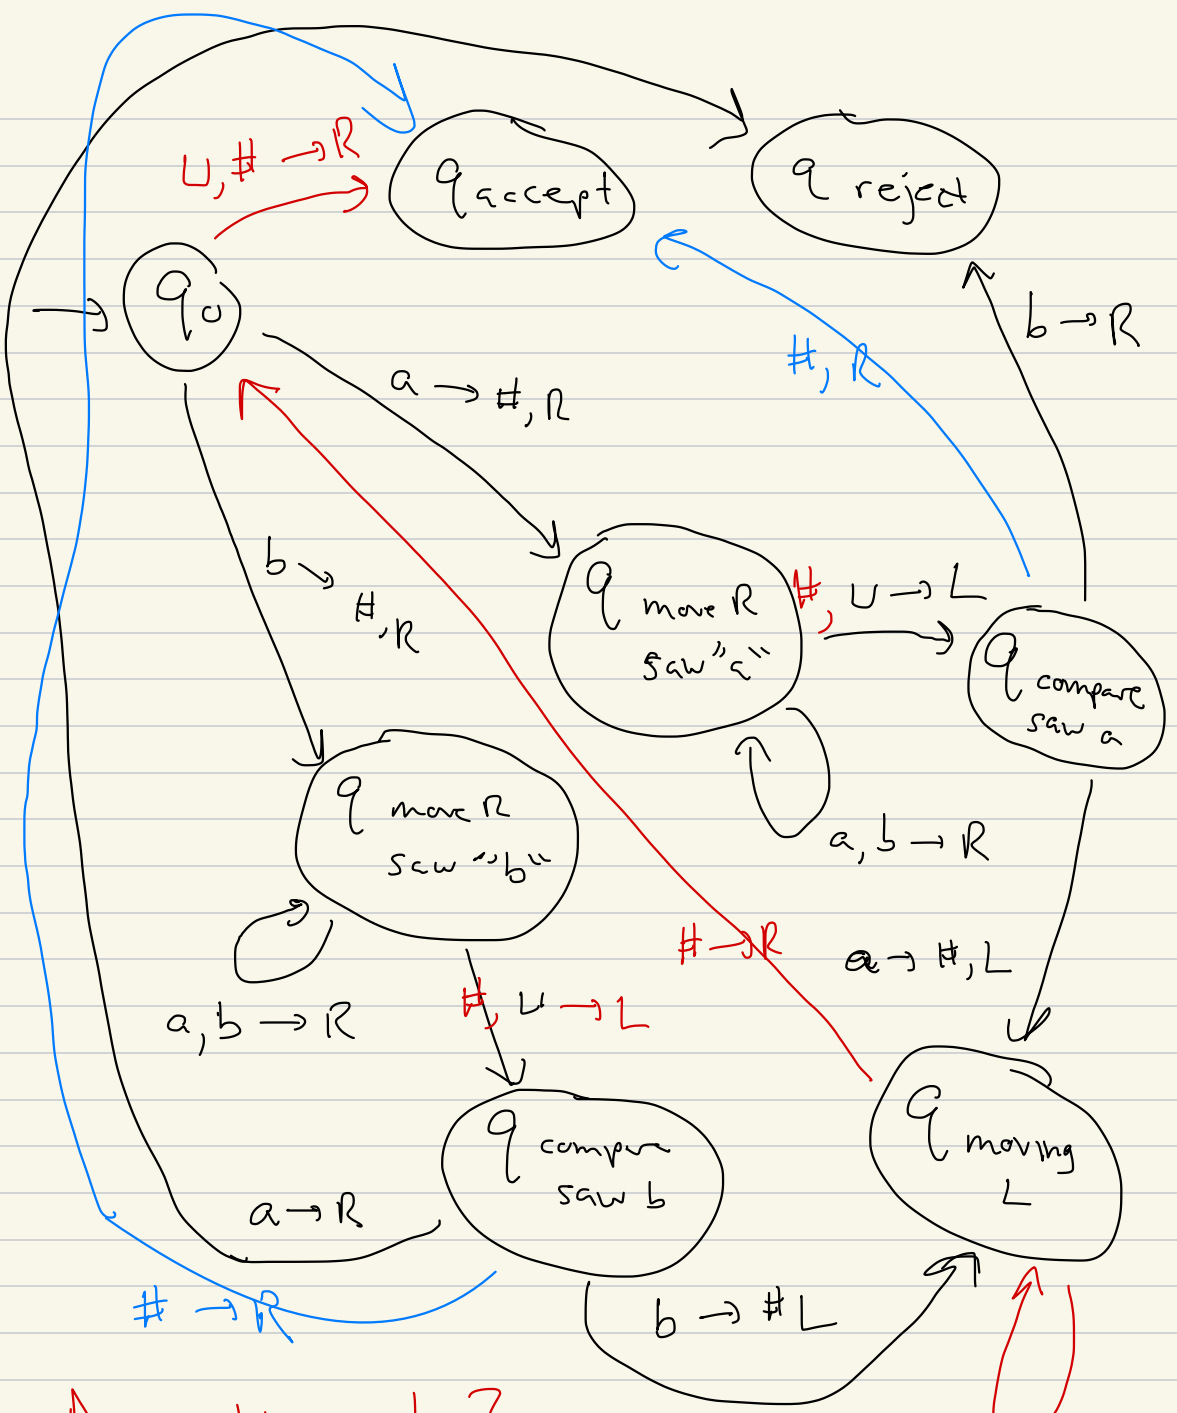 ⊔, # → R
q accept
q reject
q0
b → R
#, R
a → #, R
b → #, R
q move R saw "a"
#, ⊔ → L
q compare saw a
q move R saw "b"
a, b → R
# → R
a → #, L
a, b → R
#, ⊔ → L
q compare saw b
q moving L
a → R
# → R
b → # L